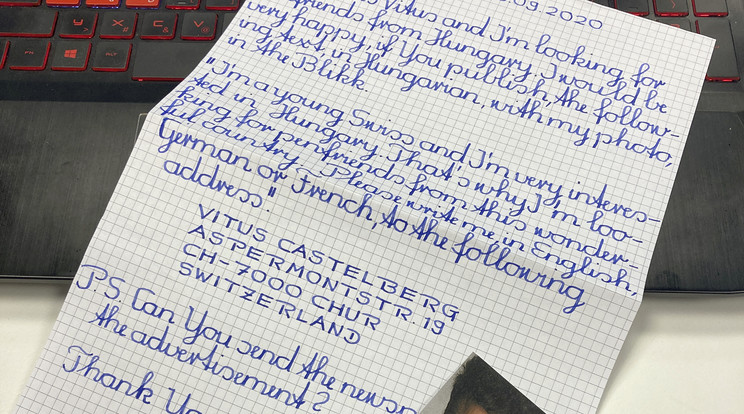 .09.2020
s Vitus and I'm looking for
friends from Hungary. I would be
very happy, if You publish the follow-
ing text, in Hungarian, with my photo,
in the Blikk.
"I'm a young Swiss and I'm very interes-
ted in Hungary. That's why I'm loo-
king for penfriends from this wonder-
ful country. Please write me, in English,
German or French, to the following
address":
VITUS CASTELBERG
ASPERMONTSTR. 19
CH-7000 CHUR
SWITZERLAND
P.S. Can You send the newsp
the advertisement?
Thank Yo